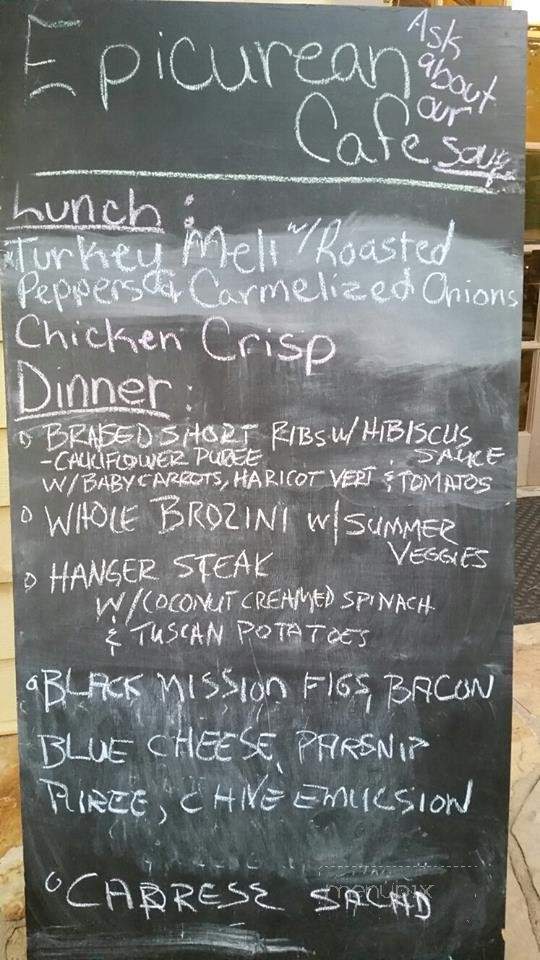 Epicurean
Cafe
Ask
about
our
soup
Lunch:
Turkey Melt w/Roasted
Peppers & Carmelized Onions
Chicken Crisp
Dinner:
BRAISED SHORT RIBS W/ HIBISCUS
SAUCE
-CAULIFLOWER PUREE
W/BABY CARROTS, HARICOT VERT & TOMATOS
WHOLE BROZINI W/ SUMMER
VEGGIES
HANGER STEAK
W/COCONUT CREAMED SPINACH
& TUSCAN POTATOES
BLACK MISSION FIGS, BACON
BLUE CHEESE, PARSNIP
PUREE, CHIVE EMULSION
CABRESE SALAD
menupix